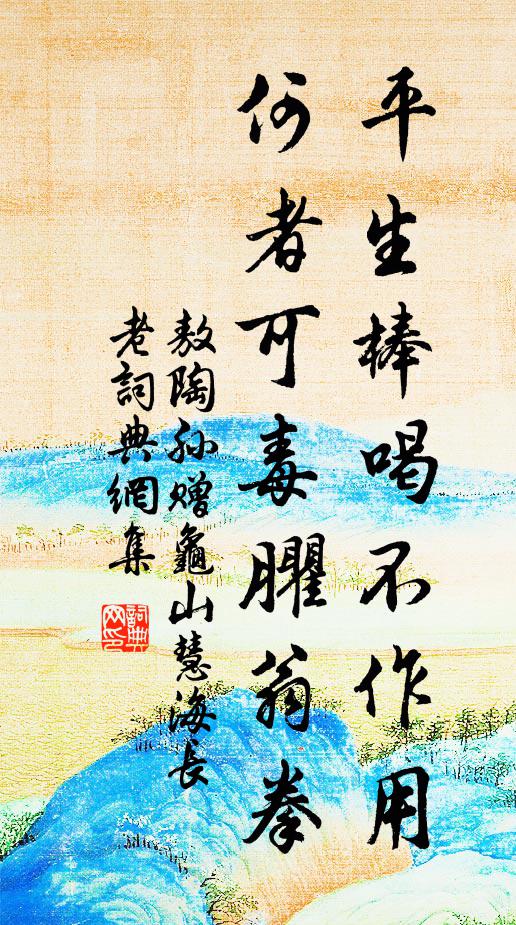 平生棒喝不作用
何者可毒臞翁拳
敖陶孙赠龜山慧海長
老詞典網集
詞典网印